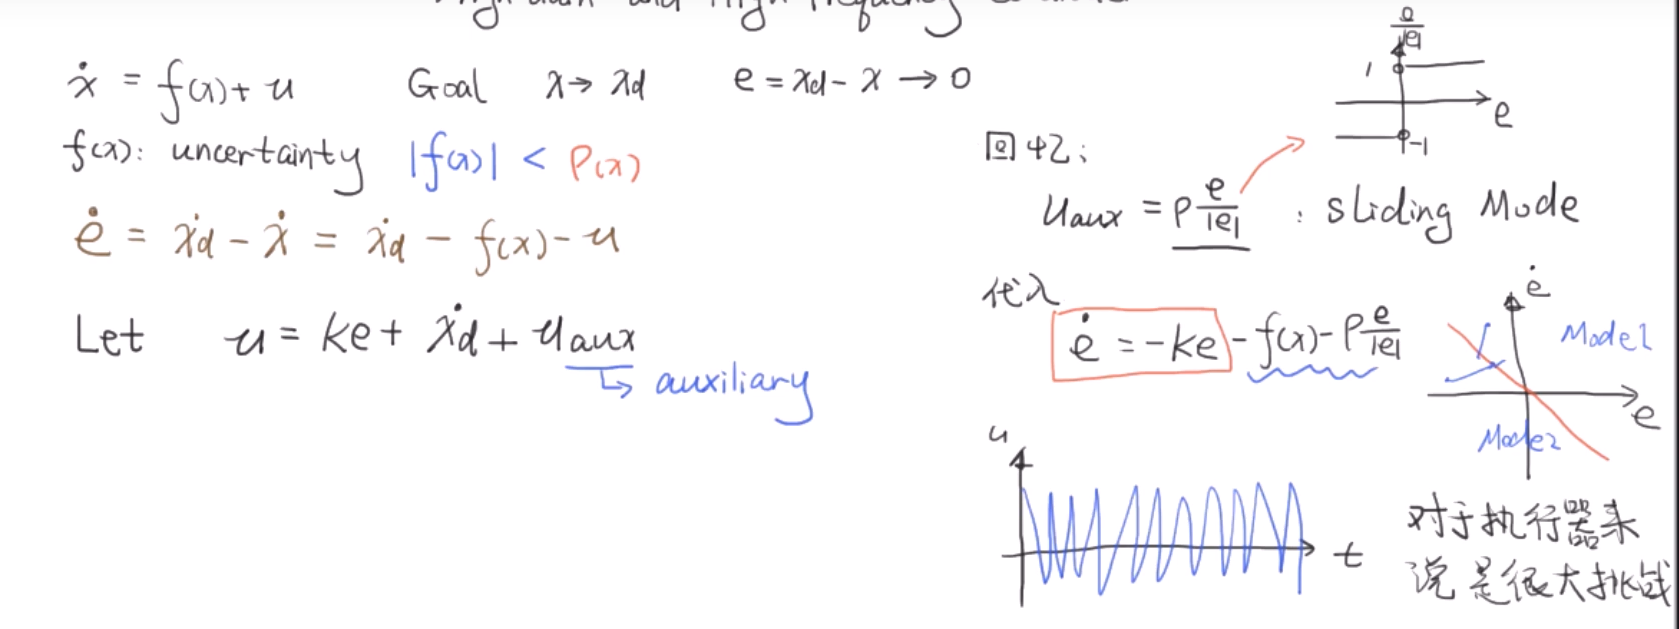 ẋ = f(x) + u Goal x → xd e = xd - x → 0
f(x): uncertainty |f(x)| < ρ(x)
ė = ẋd - ẋ = ẋd - f(x) - u
Let u = ke + ẋd + uaux
↳ auxiliary
e/|e|
1
e
-1
回忆:
uaux = ρ e/|e| : sliding Mode
代入
ė = -ke - f(x) - ρ e/|e|
ė
Mode1
e
Mode2
u
t
对于执行器来
说是很大挑战